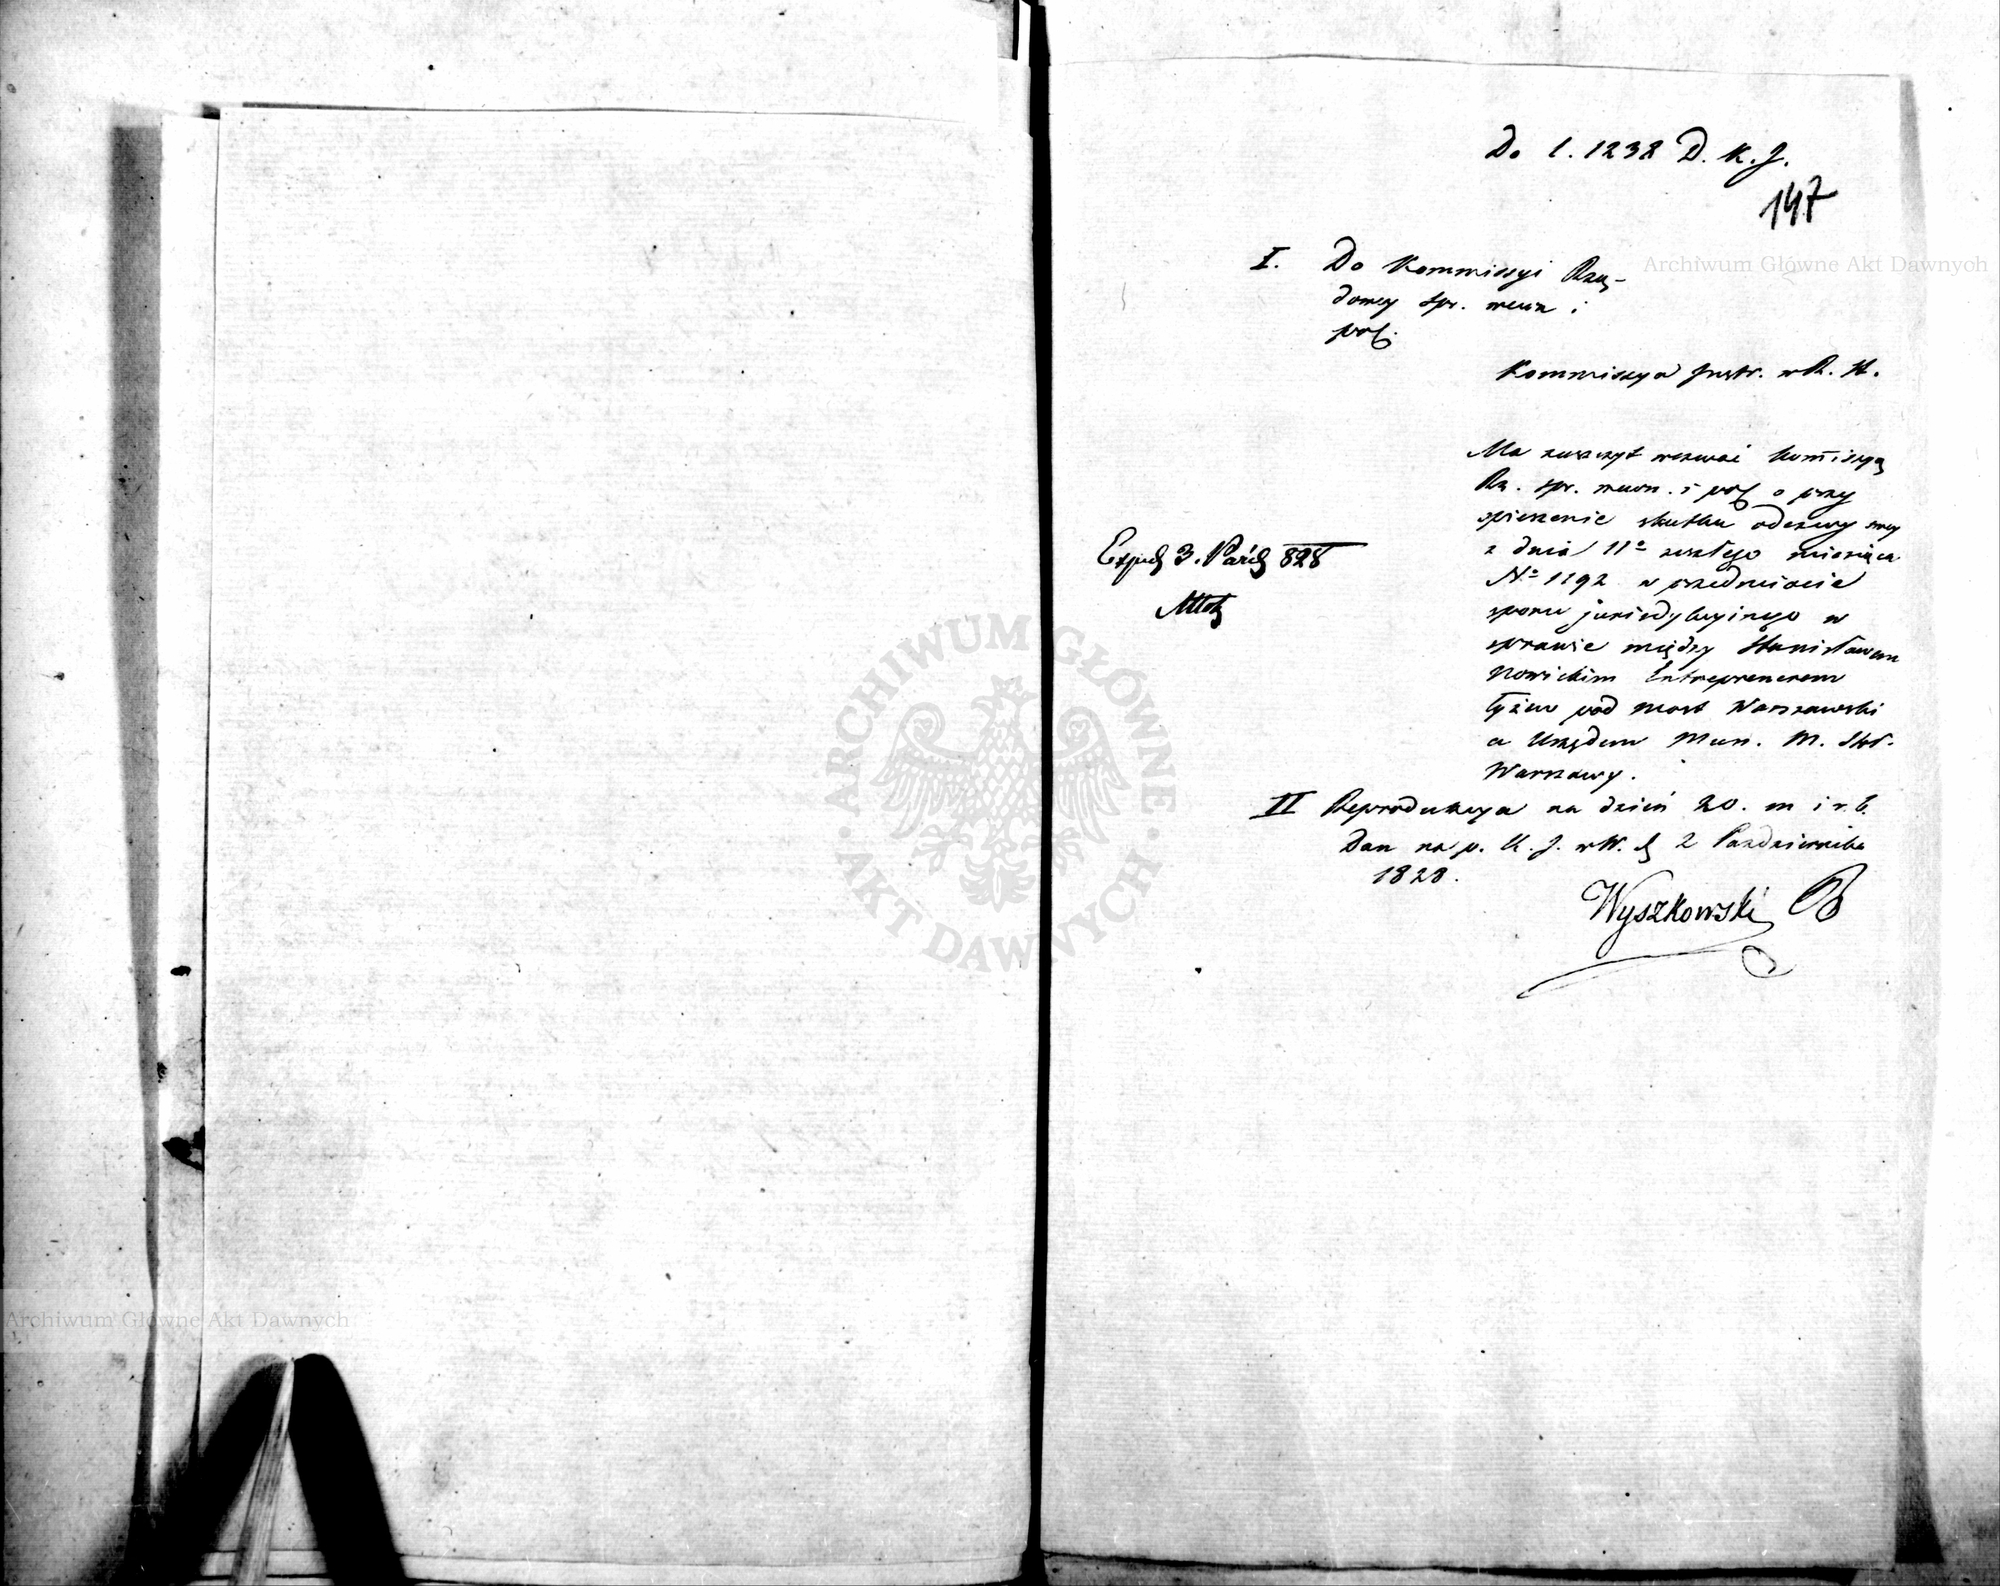 Do l. 1238 D. K. J.
147
I. Do Kommissyi Rzą-
dowey spr. wewn i
pol.
Kommissya Instr. w R. St.
Ma zaszczyt wezwać Kommissyą
Rz. spr. wewn. i pol o przy
spieszenie skutku odezwy swey
z dnia 11º zeszłego miesiąca
Nº 1192 w przedmiocie
sporu jurisdykcyinego w
sprawie między Stanisławem
Nowickim Entreprenerem
łyżew pod most Warszawski
a Urzędem Mun. M. Stoł.
Warszawy.
II Reprodukcya na dzień 20. m i r. b.
Dan na p. K. J. w W. d 2 Października
1828.
Wyszkowski
Exped 3. Paźd 828
Archiwum Główne Akt Dawnych
Archiwum Główne Akt Dawnych
ARCHIWUM GŁÓWNE
· AKT DAWNYCH ·